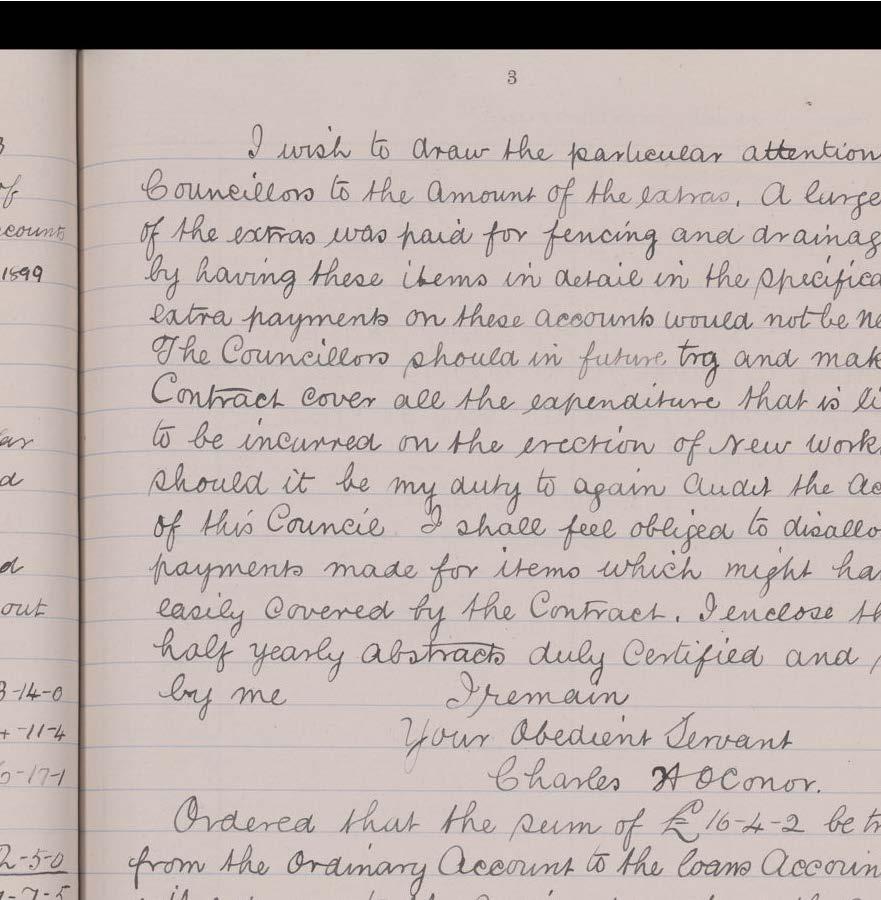 3
I wish to draw the particular attention
Councillors to the amount of the extras. A large
of the extras was paid for fencing and drainag
by having these items in detail in the specifica
extra payments on these accounts would not be ne
The Councillors should in future try and mak
Contract cover all the expenditure that is li
to be incurred on the erection of New work
should it be my duty to again Audit the Ac
of this Council I shall feel obliged to disallo
payments made for items which might ha
easily Covered by the Contract. I enclose th
half yearly abstracts duly Certified and
by me I remain
Your Obedient Servant
Charles A OConor.
Ordered that the sum of £16-4-2 be tr
from the Ordinary Account to the loans Accoun
of
ccounts
1899
ar
d
d
out
3-14-0
4-11-4
6-17-1
2-5-0
7-5